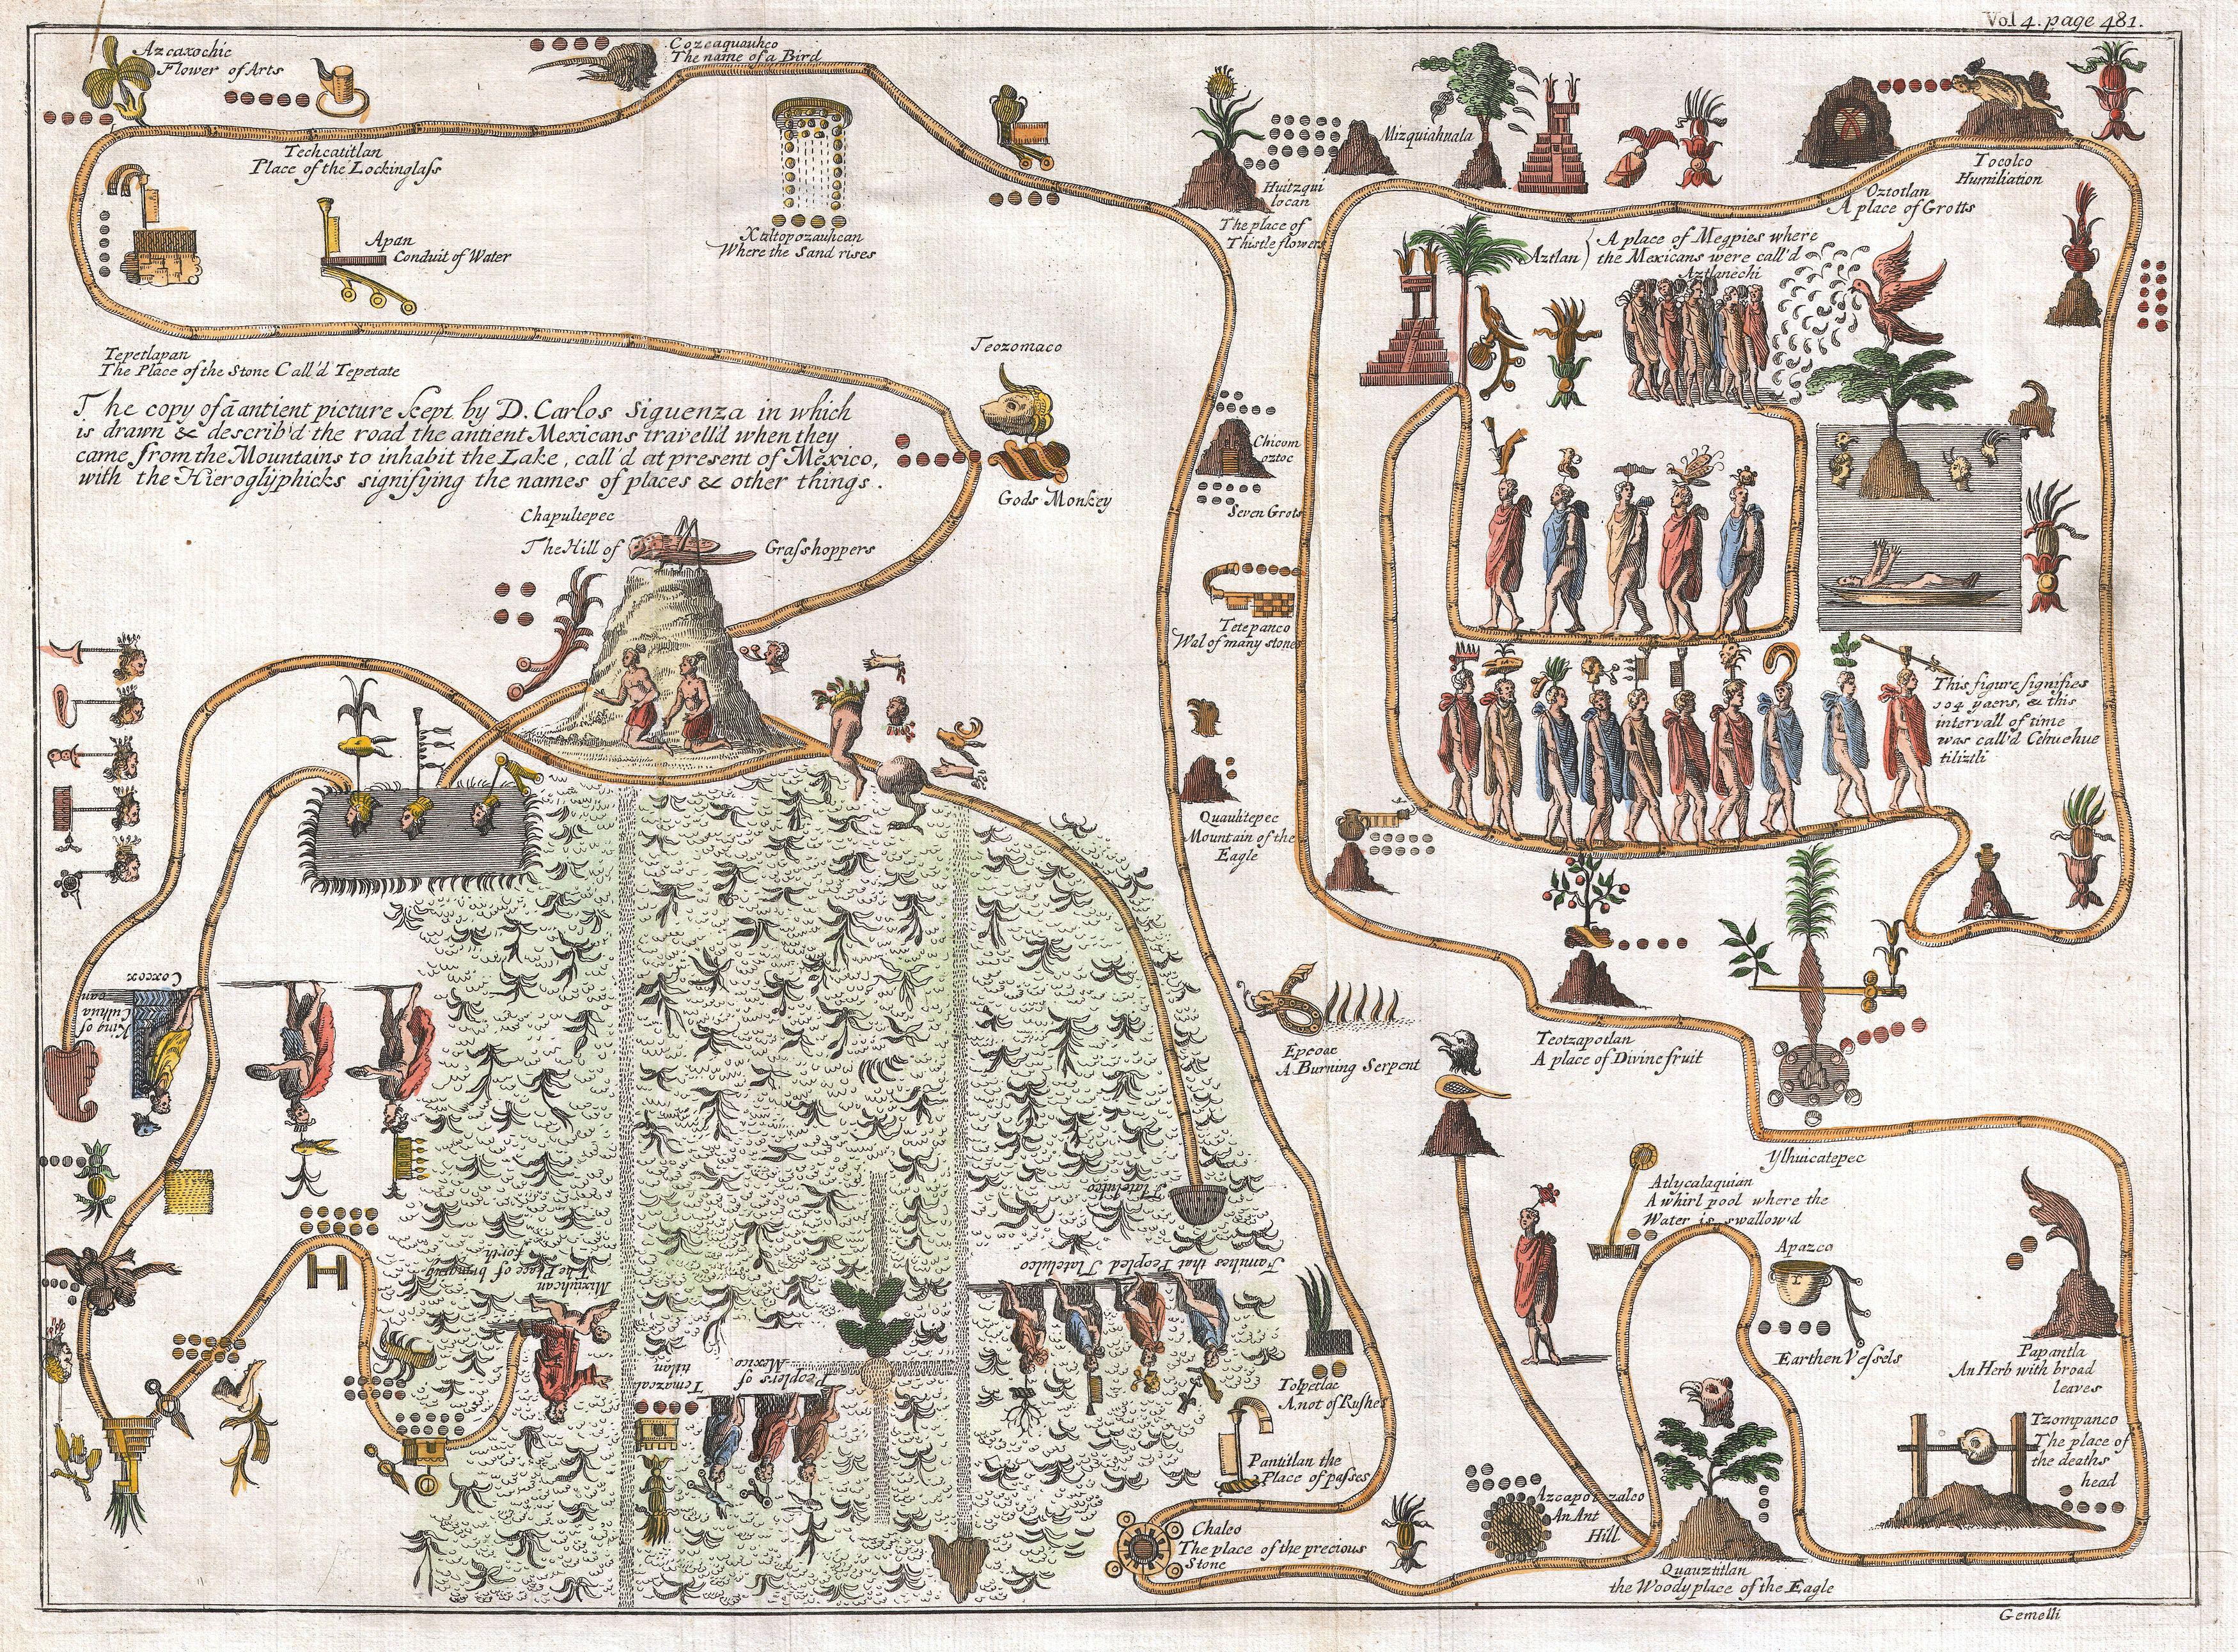 Vol 4. page 481.
Azcaxochic
Flower of Arts
Cozcaquauhco
The name of a Bird
Techcatitlan
Place of the Lockinglass
Apan
Conduit of Water
Xaltopozauhcan
Where the Sand rises
Huitzqui
locan
The place of
Thistle flowers
Mizquiahuala
Oztotlan
A place of Grotts
Tocolco
Humiliation
Aztlan
A place of Megpies where
the Mexicans were call'd
Aztlanechi
Tepetlapan
The Place of the Stone Call'd Tepetate
The copy of ā antient picture kept by D. Carlos Siguenza in which
is drawn & describ'd the road the antient Mexicans travell'd when they
came from the Mountains to inhabit the Lake, call'd at present of Mexico,
with the Hieroglyphicks signifying the names of places & other things.
Teozomaco
Gods Monkey
Chapultepec
The Hill of Grasshoppers
Chicom
oztoc
Seven Grots
Tetepanco
Wal of many stones
Quauhtepec
Mountain of the
Eagle
This figure signifies
104 yaers, & this
intervall of time
was call'd Cehuehue
tiliztli
Epcoac
A Burning Serpent
Teotzapotlan
A place of Divine fruit
Ylhuicatepec
Atlycalaquian
A whirl pool where the
Water is swallow'd
Apazco
Earthen Vessels
Papantla
An Herb with broad
leaves
Tzompanco
The place of
the deaths
head
Tolpetlac
A not of Rushes
Pantitlan the
Place of passes
Chalco
The place of the precious
Stone
Azcapotzalco
An Ant
Hill
Quauztitlan
the Woody place of the Eagle
Coxcox
King of
Culhua
can
Mixiuhcan
The Place of bringing
forth
Tlatelulco
Families that Peopled Tlatelulco
Peoplers of
Mexico
Temazcal
titlan
Gemelli